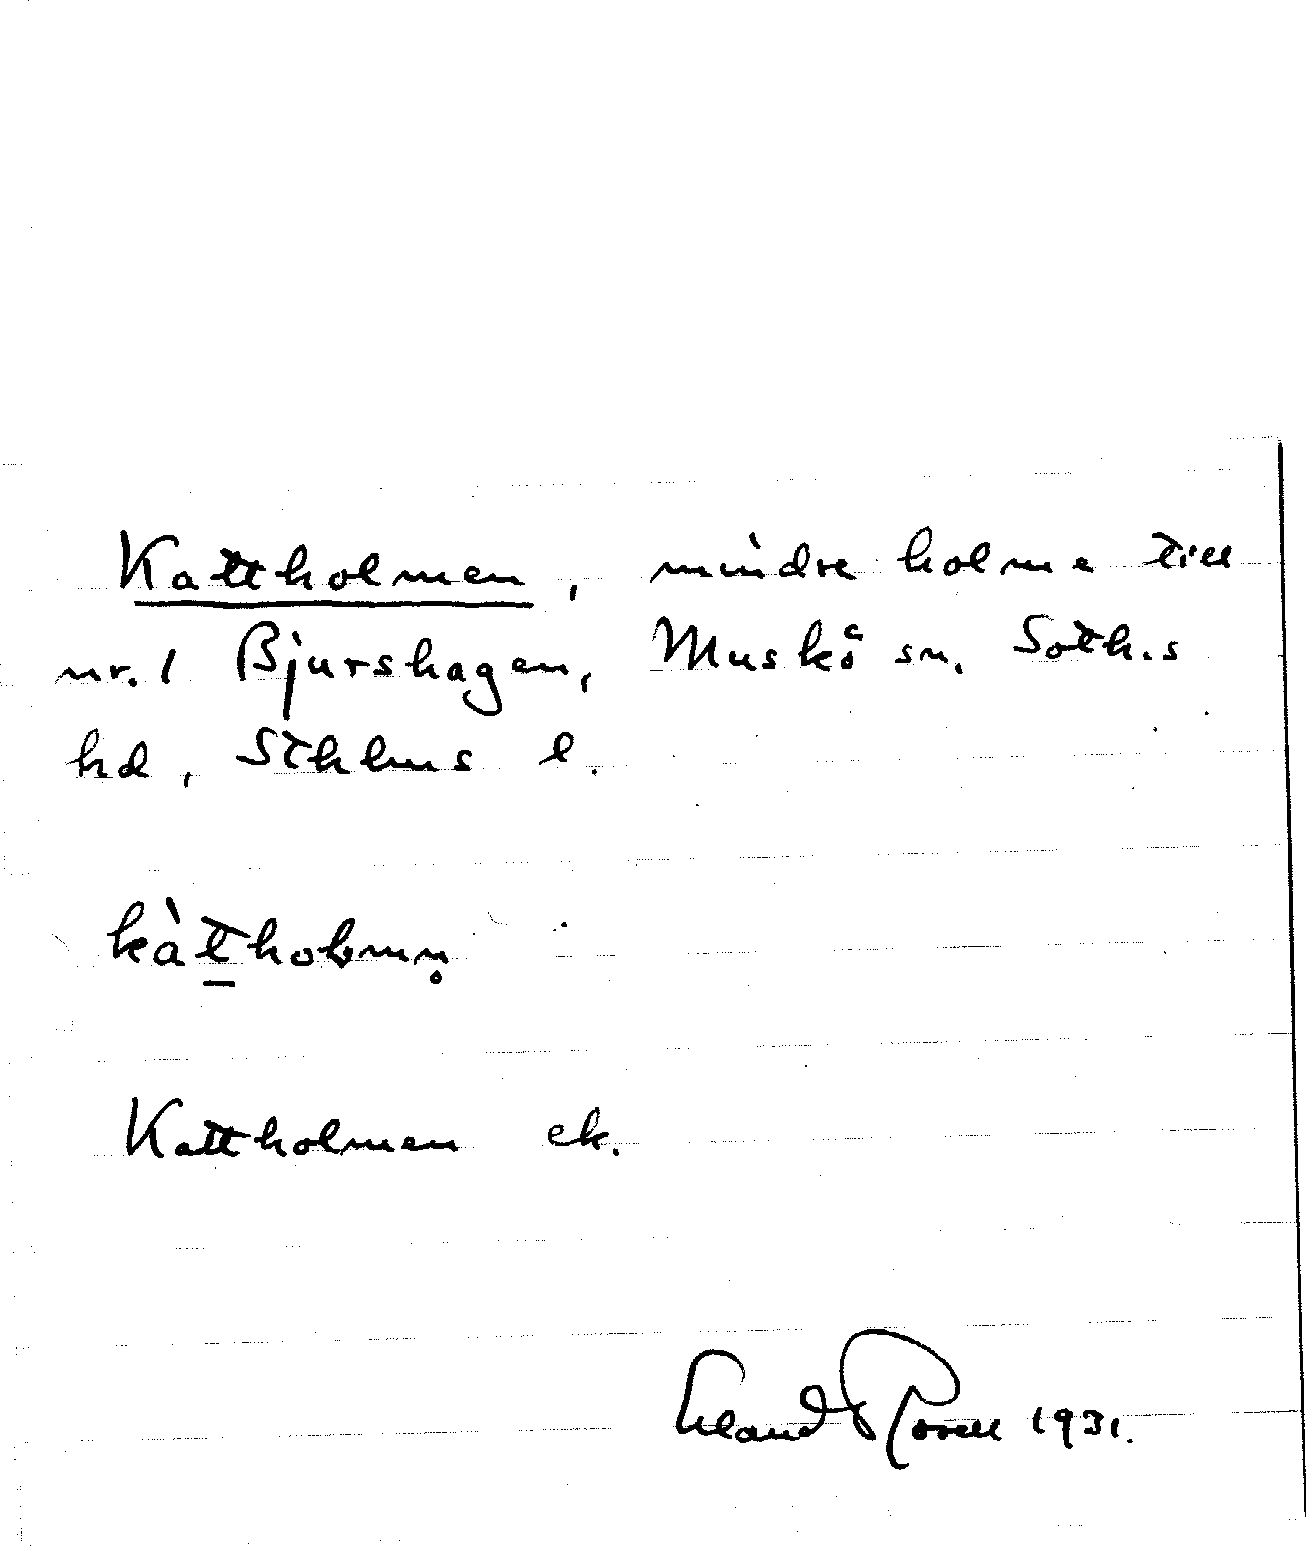 Kattholmen, mindre holme till
nr. 1 Bjurshagen, Muskö sn. Soth.s
hd, Sthlms l.
kàt̲holmn̥
Kattholmen ek.
Erland Rosell 1931.